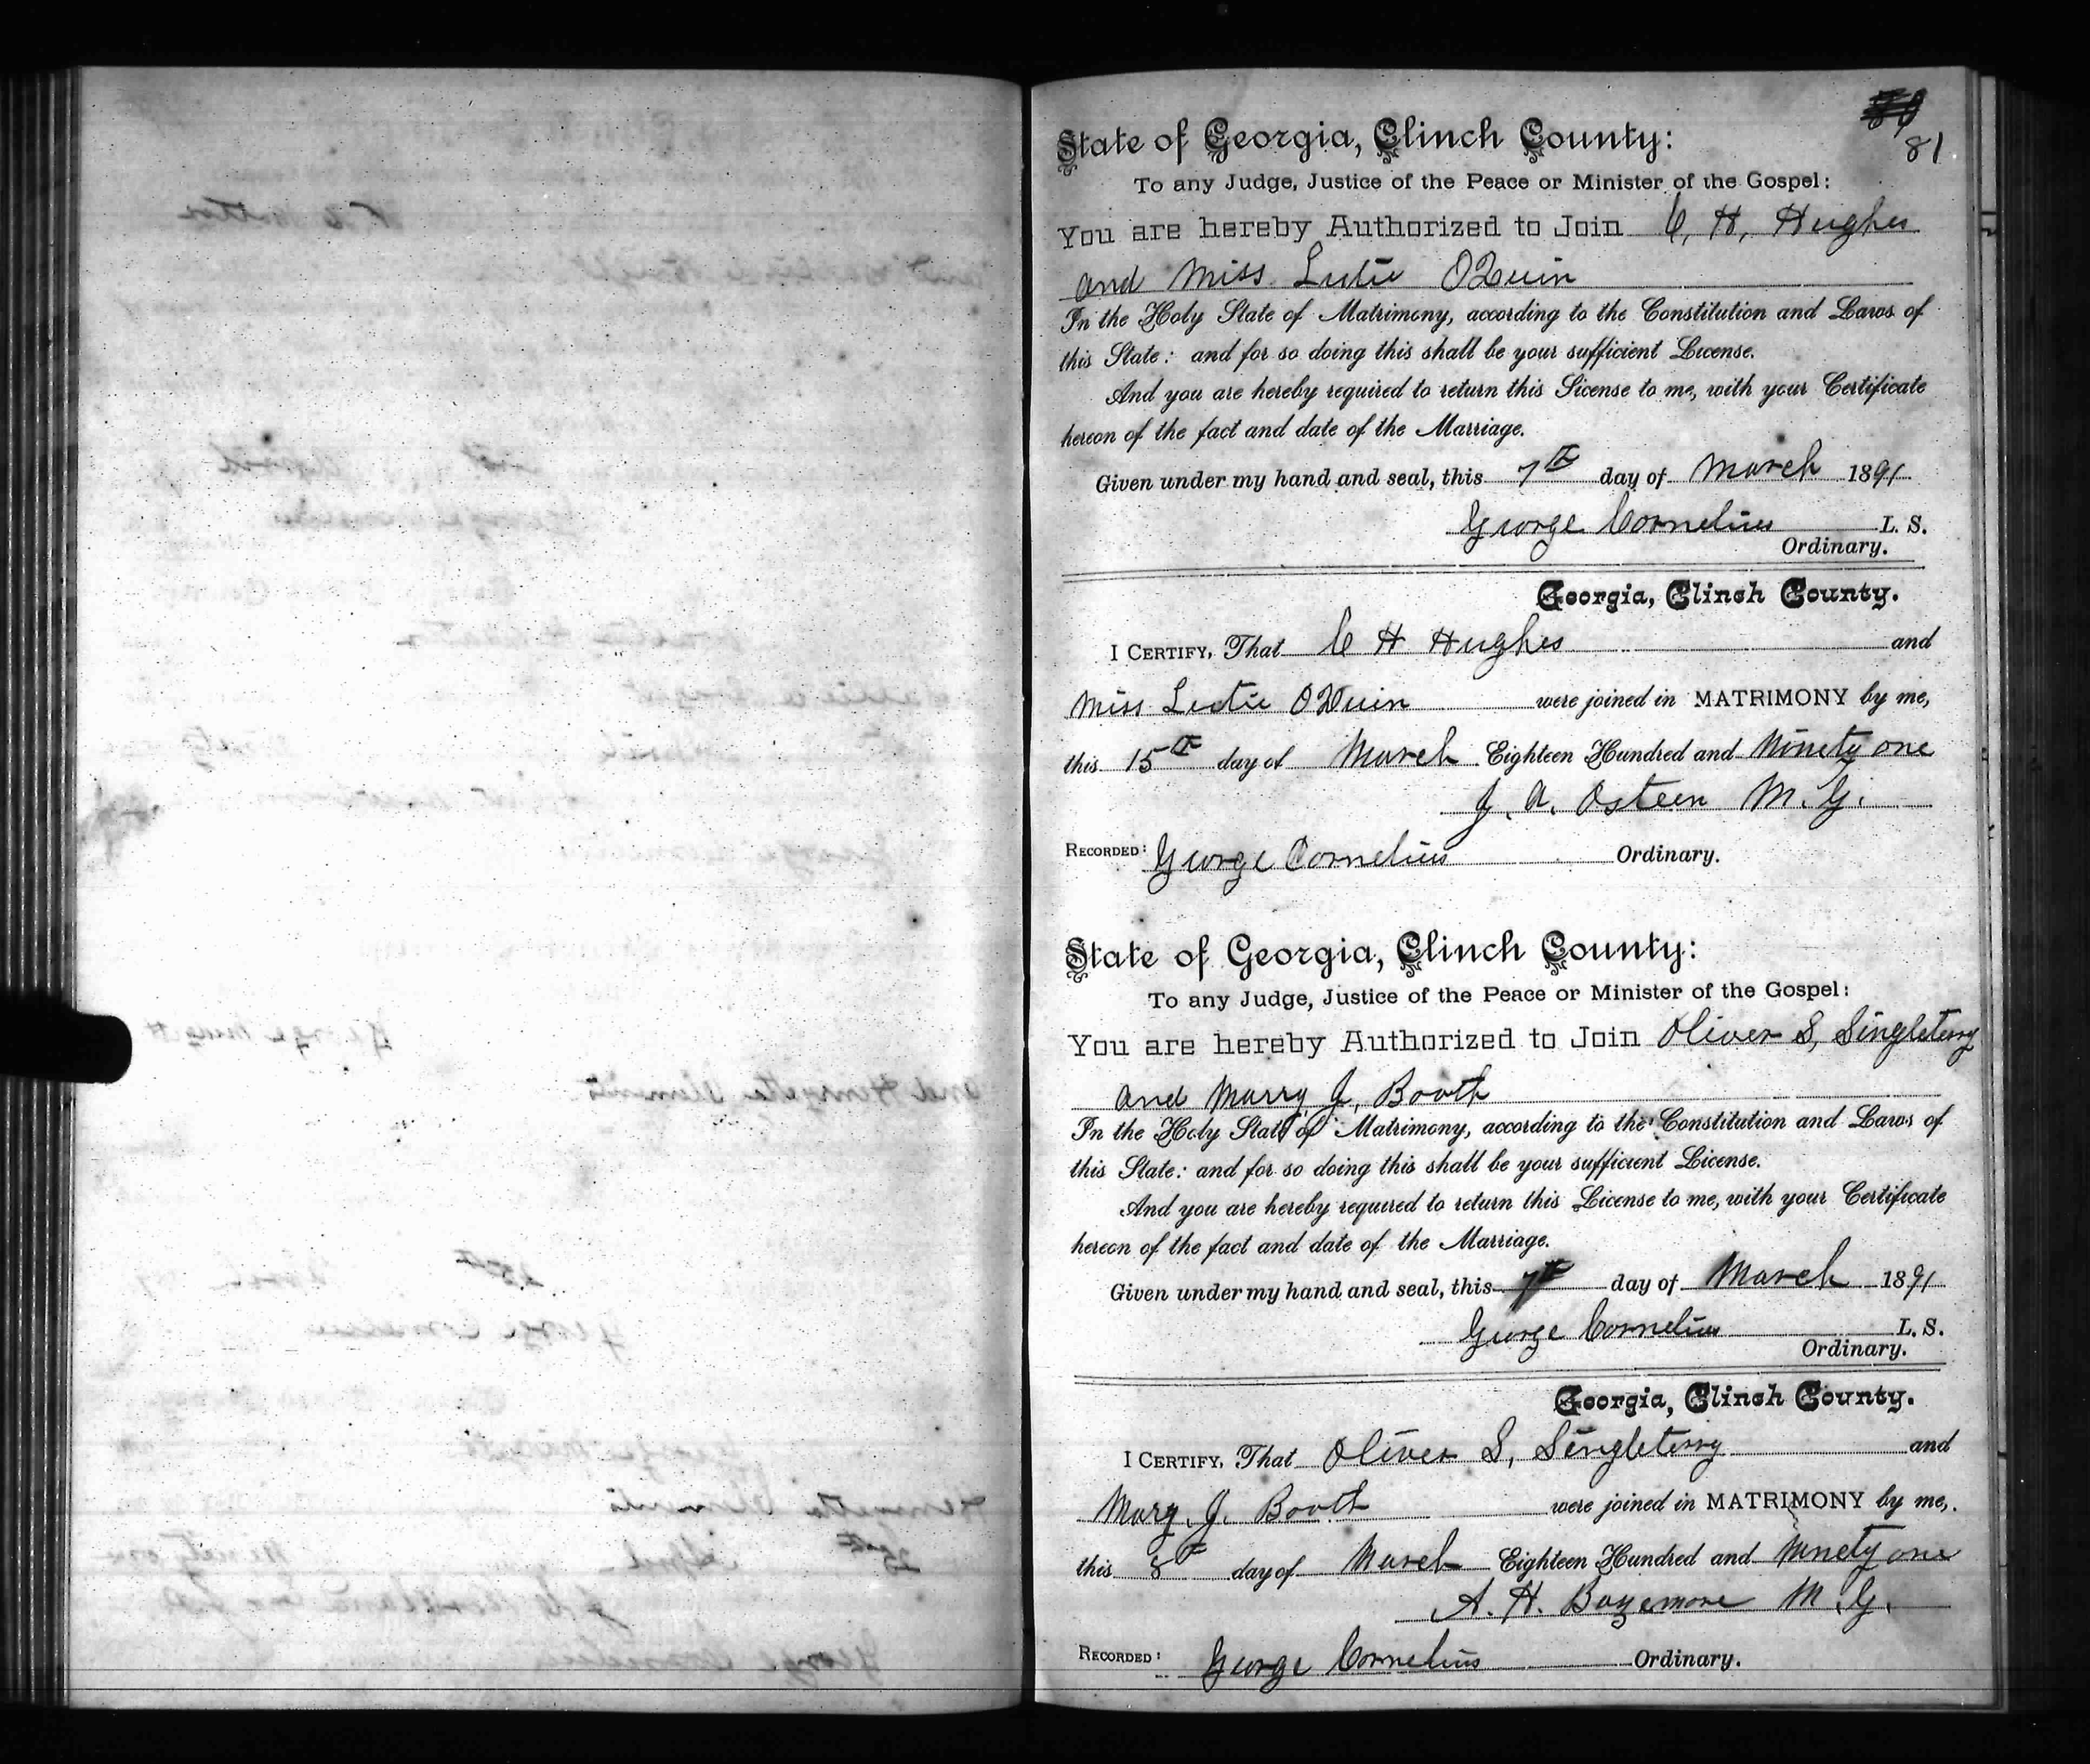 81
State of Georgia, Clinch County:
To any Judge, Justice of the Peace or Minister of the Gospel:
You are hereby Authorized to Join C. H. Hughes
and Miss Lutie OQuin
In the Holy State of Matrimony, according to the Constitution and Laws of
this State: and for so doing this shall be your sufficient License.
And you are hereby required to return this License to me, with your Certificate
hereon of the fact and date of the Marriage.
Given under my hand and seal, this 7th day of March 1891
George Cornelius L. S.
Ordinary.
Georgia, Clinch County.
I CERTIFY, That C H Hughes and
Miss Lutie OQuin were joined in MATRIMONY by me,
this 15th day of March Eighteen Hundred and Ninety one
J. A. Osteen M. G.
RECORDED: George Cornelius Ordinary.
State of Georgia, Clinch County:
To any Judge, Justice of the Peace or Minister of the Gospel:
You are hereby Authorized to Join Oliver S, Singleterry
and Marry J, Booth
In the Holy State of Matrimony, according to the Constitution and Laws of
this State: and for so doing this shall be your sufficient License.
And you are hereby required to return this License to me, with your Certificate
hereon of the fact and date of the Marriage.
Given under my hand and seal, this 7th day of March 1891
George Cornelius L. S.
Ordinary.
Georgia, Clinch County.
I CERTIFY, That Oliver S, Singleterry and
Mary J. Booth were joined in MATRIMONY by me,
this 8th day of March Eighteen Hundred and Ninety one
A. H. Bazemore M. G.
RECORDED: George Cornelius Ordinary.